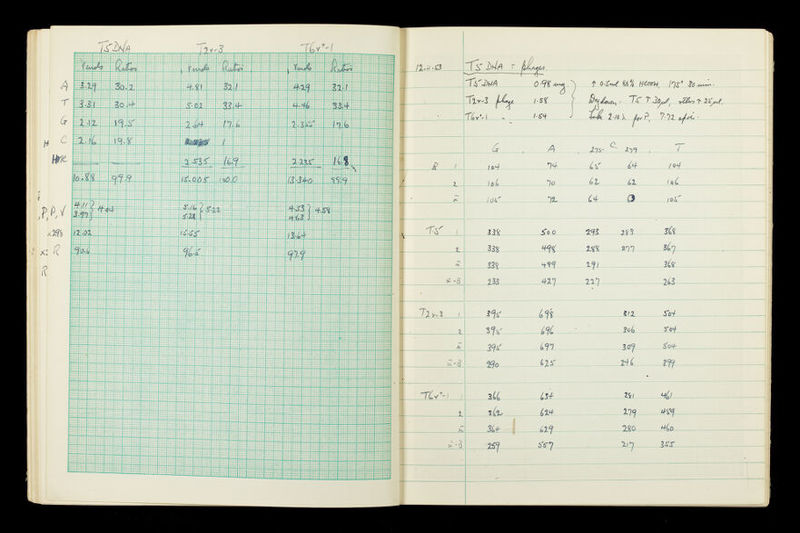 T5 DNA T2r-3 T6r+-1
Yields Ratios Yields Ratios Yields Ratios
A 3.29 30.2 4.81 32.1 4.29 32.1
T 3.31 30.4 5.02 33.4 4.46 33.4
G 2.12 19.5 2.64 17.6 2.355 17.6
C 2.16 19.8
2.535 16.9 2.235 16.8
10.88 99.9 15.005 100.0 13.340 99.9
4.11 5.16 4.53
3.97 4.04 5.28 5.22 4.63 4.58
12.02 15.55 13.64
90.6 96.5 97.9
T5 DNA - phages
T5 DNA 0.98 mg
T2r-3 phage 1.58
T6r+-1 " 1.54
G A 275 C 279 T
B 1 104 74 65 64 104
2 106 70 62 62 106
105 72 64 63 105
T5 1 338 500 293 283 368
2 338 498 288 277 367
338 499 291 368
233 427 227 263
T2r-3 1 395 698 312 504
2 395 696 306 504
395 697 309 504
290 625 246 399
T6r+-1 1 366 634 281 461
2 362 624 279 459
364 629 280 460
259 557 217 355